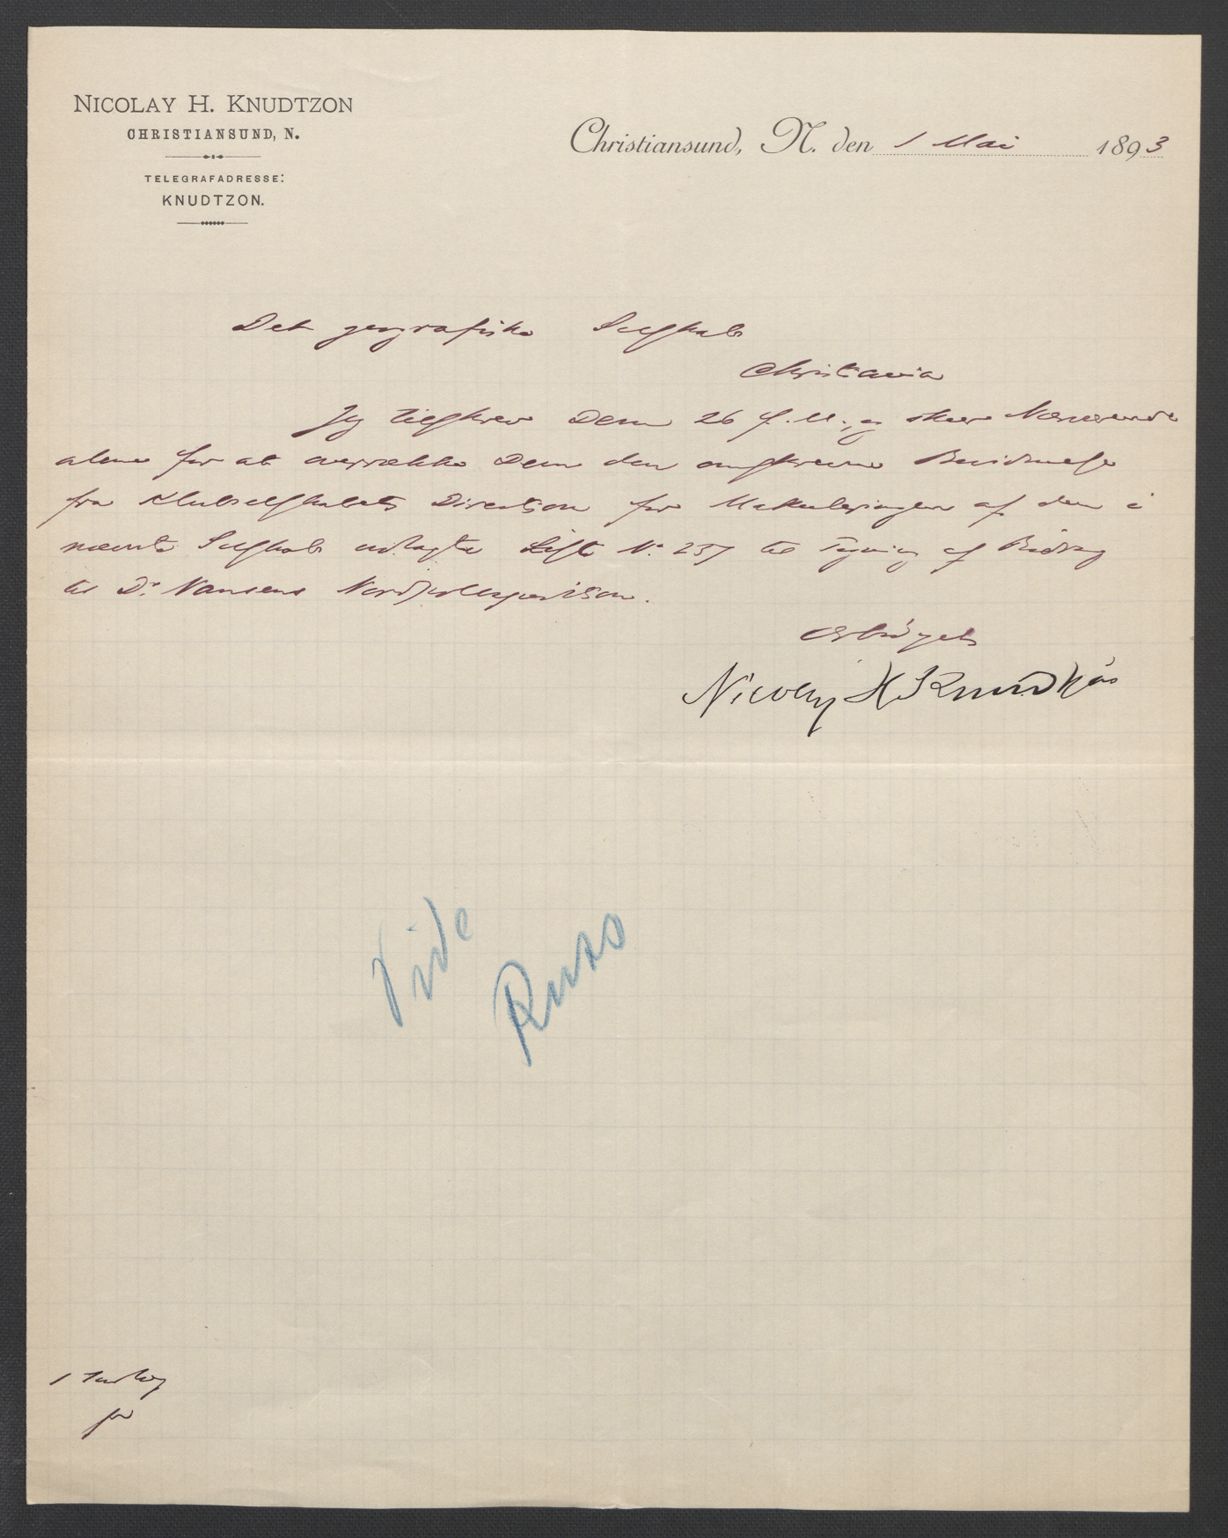 NICOLAY H. KNUDTZON
CHRISTIANSUND, N.
TELEGRAFADRESSE:
KNUDTZON.
Christiansund, N. den 1 Mai 1893
Det geografiske Selskab
Christiania
Jeg tilskrev Dem 26 f. M., og sker Nærværende
alene for at overrække Dem den omskrevne Bevidnelse
fra Klubselskabets Direction for Makuleringen af den i
nævnte Selskab udlagte Liste No 257 til Tegning af Bidrag
til Dr. Nansens Nordpolexpedition.
Ærbødigst
Nicolay H Knudtzon
Vide
Russ
1 Indlæg